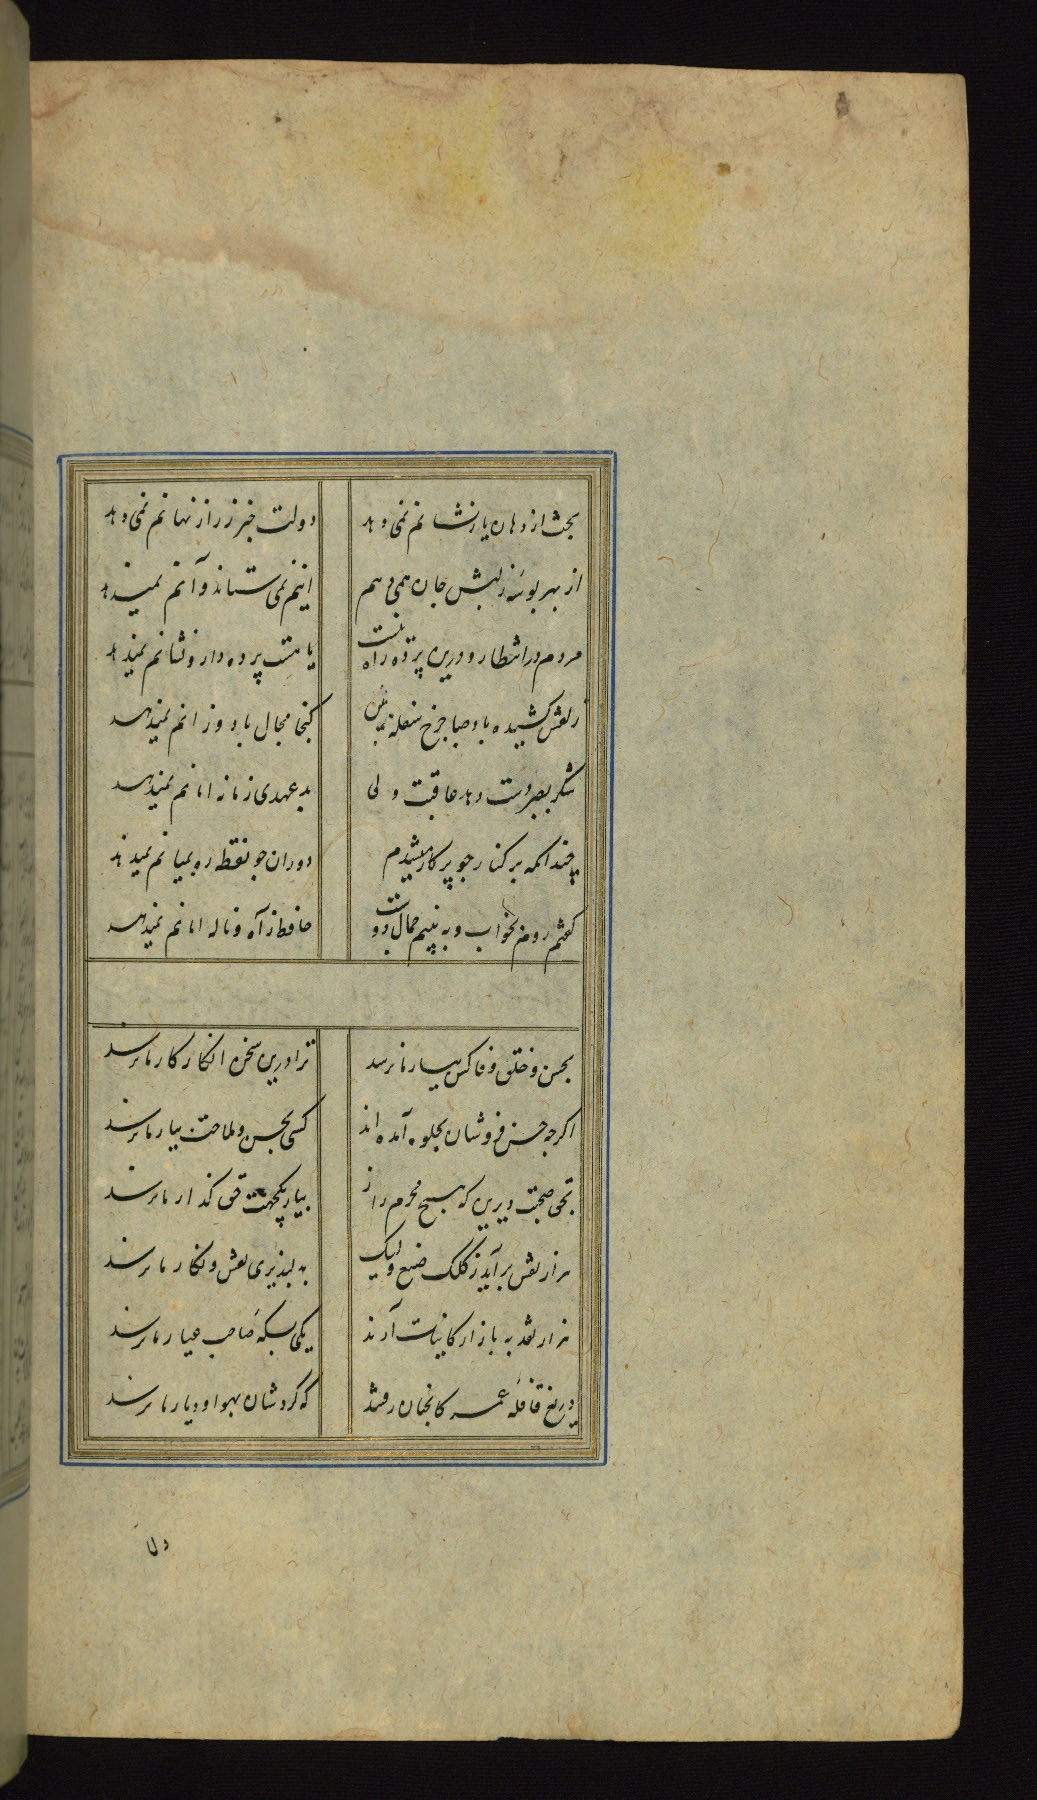 بخت از دهان یار نشانم نمی دهد دولت خبر ز راز نهانم نمی دهد
از بهر بوسه ز لبش جان همی دهم اینم نمی ستاند و آنم نمیدهد
مردم در انتظار و درین پرده راه نیست یا هست پرده دار و نشانم نمیدهد
زلفش کشیده باد صبا چرخ سفله بین کنجا مجال باد وزانم نمیدهد
شکر بصبر دست دهد عاقبت ولی بد عهدی زمانه امانم نمیدهد
چندانکه بر کنار چو پرکار میشدم دوران چو نقطه ره بمیانم نمیدهد
کفتم روم بخواب و به بینم جمال دوست حافظ ز آه و ناله امانم نمیدهد
بحسن و خلق و وفا کس بیار ما نرسد ترا درین سخن انکار کار ما نرسد
اکرچه حسن فروشان بجلوه آمده اند کسی بحسن و ملاحت بیار ما نرسد
بحق صحبت دیرین که هیچ محرم راز بیار یکجهت حق کذار ما نرسد
هزار نقش بر آید ز کلک صنع ولیک به لپذیری نقش و نکار ما نرسد
هزار نقد به بازار کاینات آرند یکی بسکه صاحب عیار ما نرسد
دریغ قافله عمر کانچنان رفتند که کردشان بهوا و دیار ما نرسد
دلا